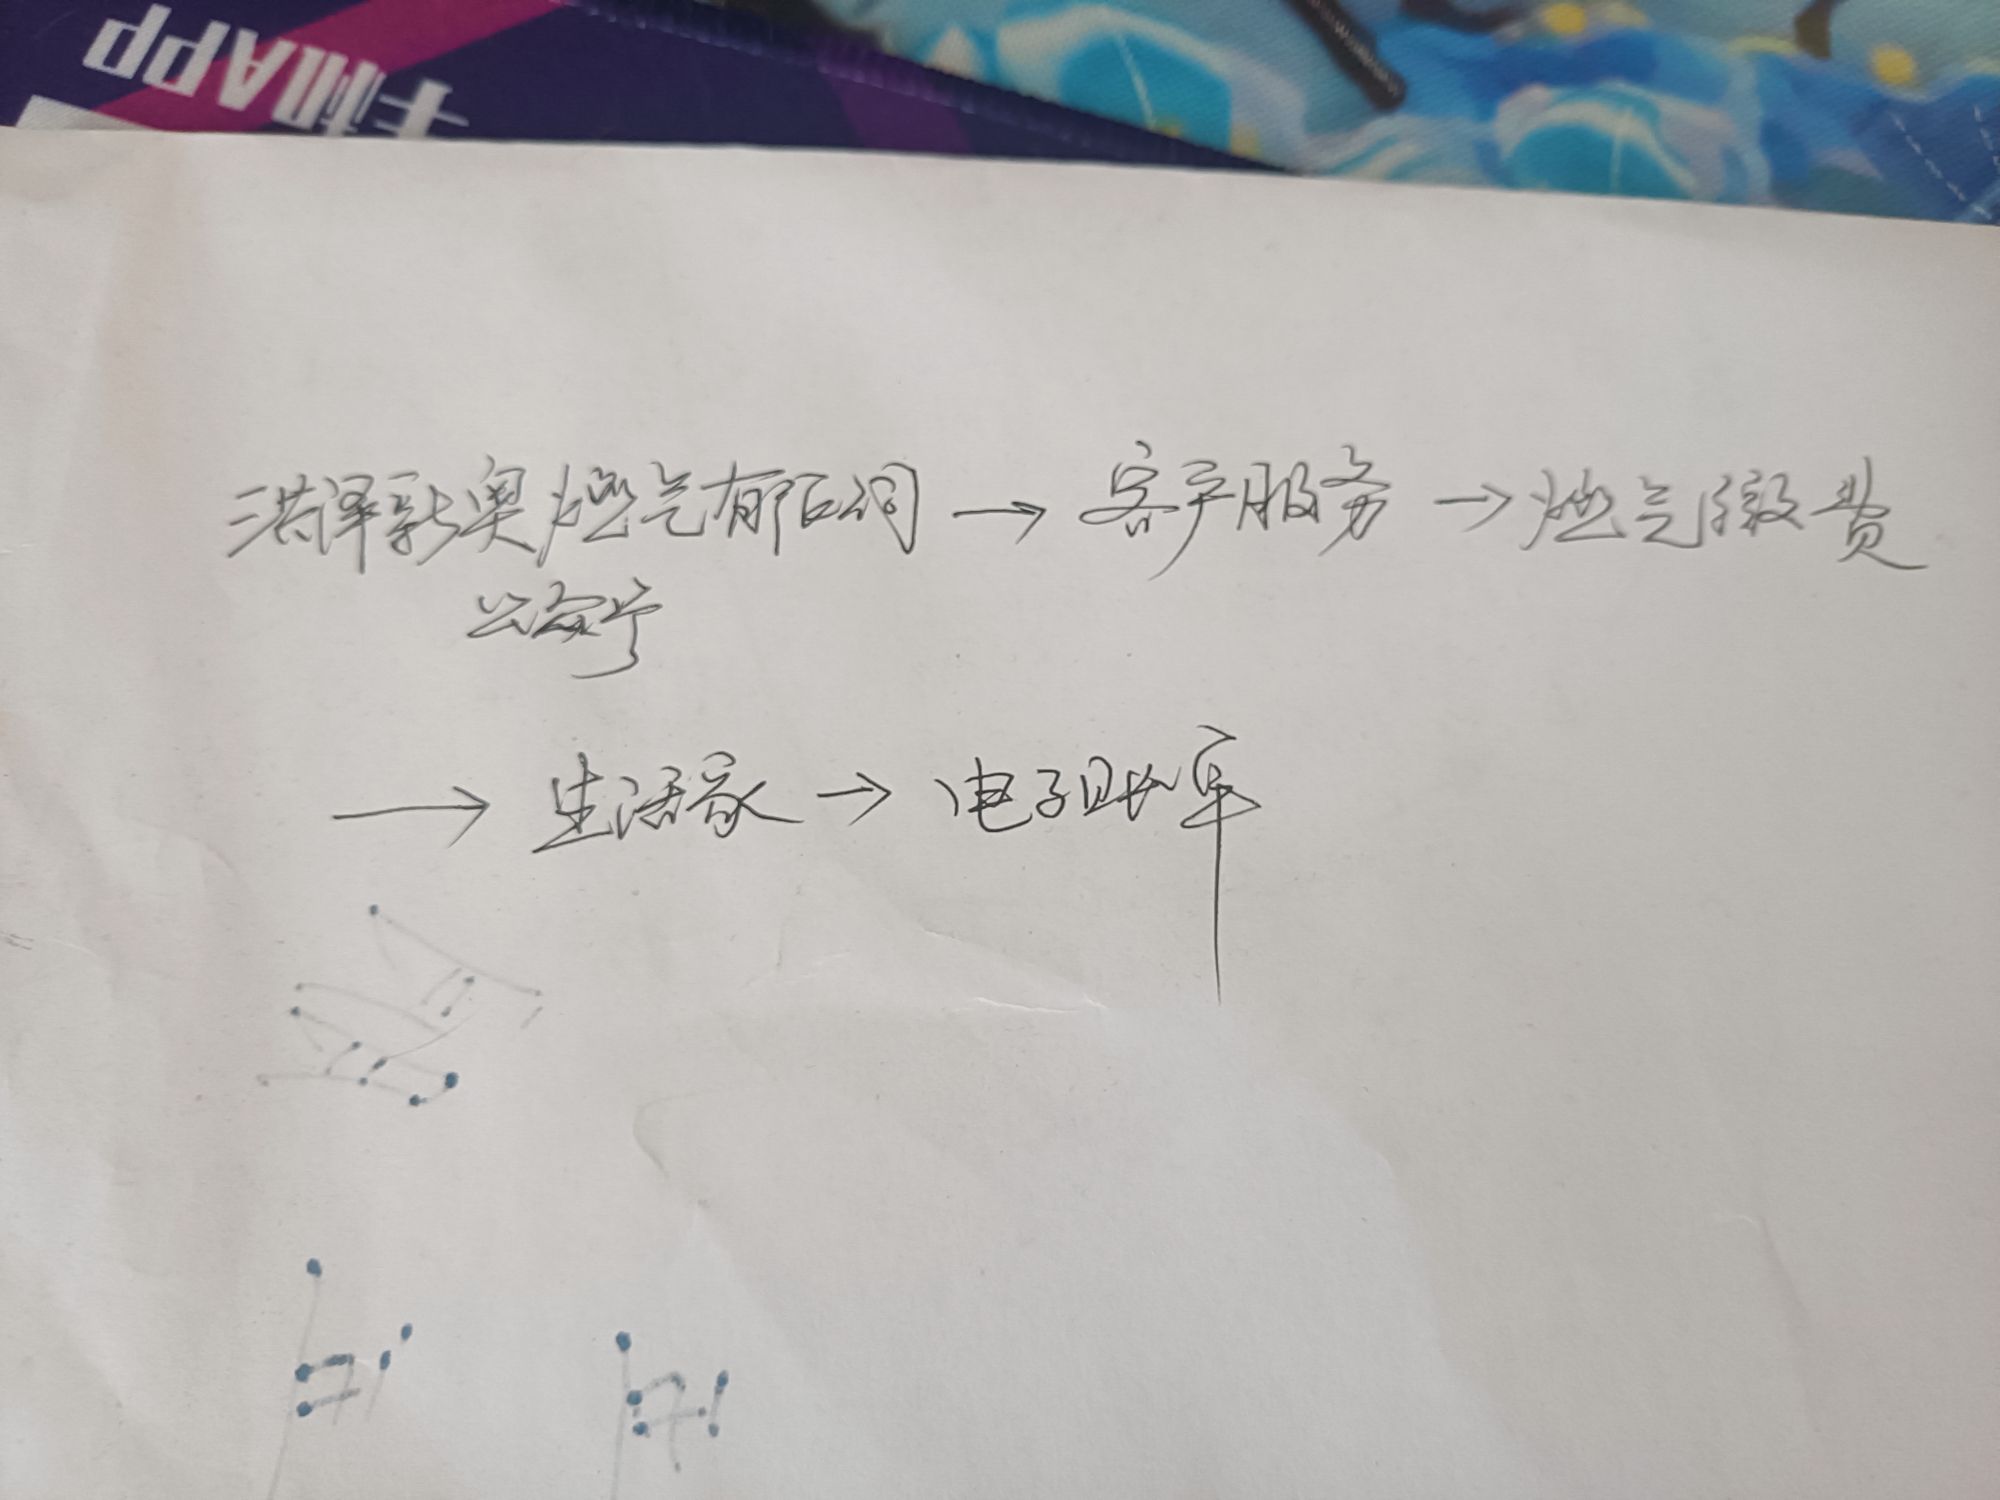 手机APP
洪泽新奥燃气有限公司 → 客户服务 → 燃气缴费
公众号
→ 生活家 → 电子助车